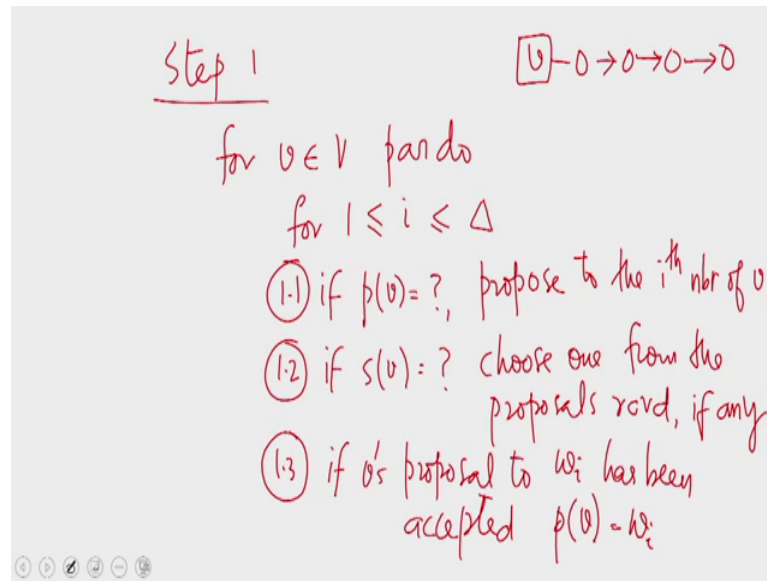 Step 1
υ - 0 → 0 → 0 → 0
for υ ∈ V pardo
for 1 ≤ i ≤ Δ
1.1 if p(υ) = ?, propose to the iᵗʰ nbr of υ
1.2 if s(υ) = ? choose one from the
proposals rcvd, if any
1.3 if υ's proposal to wᵢ has been
accepted p(υ) = wᵢ